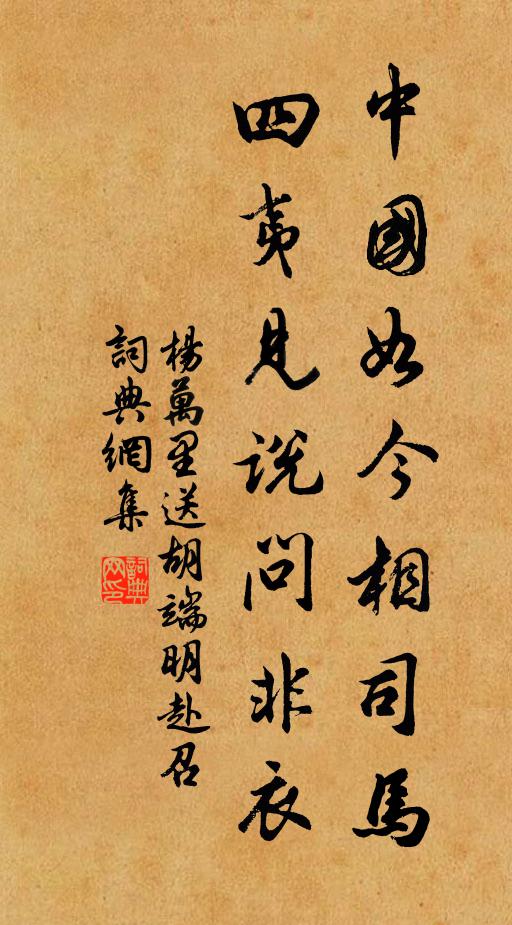 中國如今相司馬
四夷見說問非衣
楊萬里送胡端明赴召
詞典網集
詞典網印